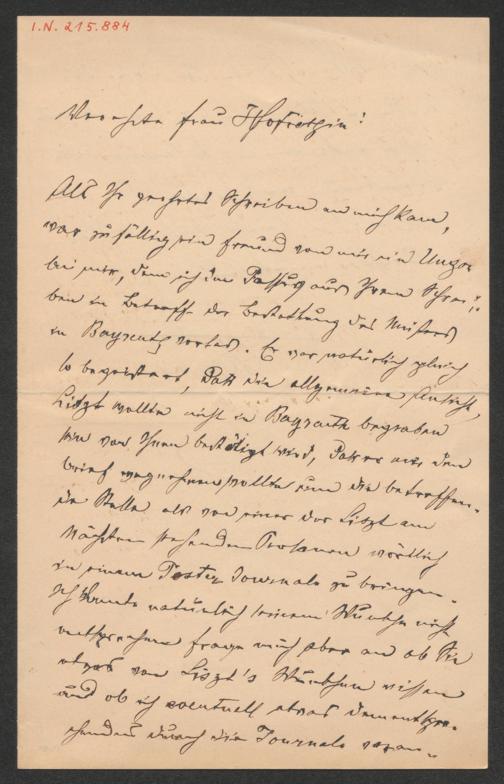 I.N. 215.884
Verehrte Frau Hofräthin!
Als Ihr geehrtes Schreiben an mich kam,
war zufällig ein Freund von mir ein Ungar
bei mir, dem ich den Passus aus Ihrem Schrei-
ben in Betreff der Bestattung des Meisters
in Bayreuth vorlas. Er war natürlich gleich
so begeistert, daß die allgemeine Ansicht,
Liszt wollte nicht in Bayreuth begraben
sein von Ihnen bestätigt wird, daß er mir den
Brief wegnehmen wollte um die betreffen-
de Stelle als von einer der Liszt am
nächsten stehenden Personen wörtlich
in einem Pester Journale zu bringen.
Ich konnte natürlich seinem Wunsche nicht
entsprechen frage mich aber an ob Sie
etwas von Liszt's Wünschen wissen
und ob ich eventuell etwas dementspre-
chendes durch die Journale